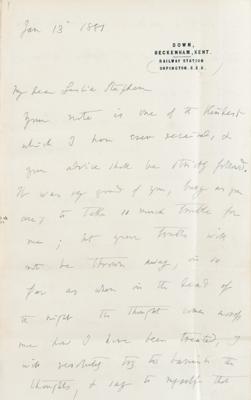 Jan 13th 1881
DOWN,
BECKENHAM, KENT.
RAILWAY STATION
ORPINGTON. S.E.R.
My dear Leslie Stephen
Your note is one of the kindest
which I have ever received, &
your advice shall be strictly followed.
It was very good of you, busy as you
are, to take so much trouble for
me; but your trouble will
not be thrown away, in so
far as when in the dead of
the night the thought comes
me how I have been treated, I
will resolutely try to banish the
thought, & say to myself that